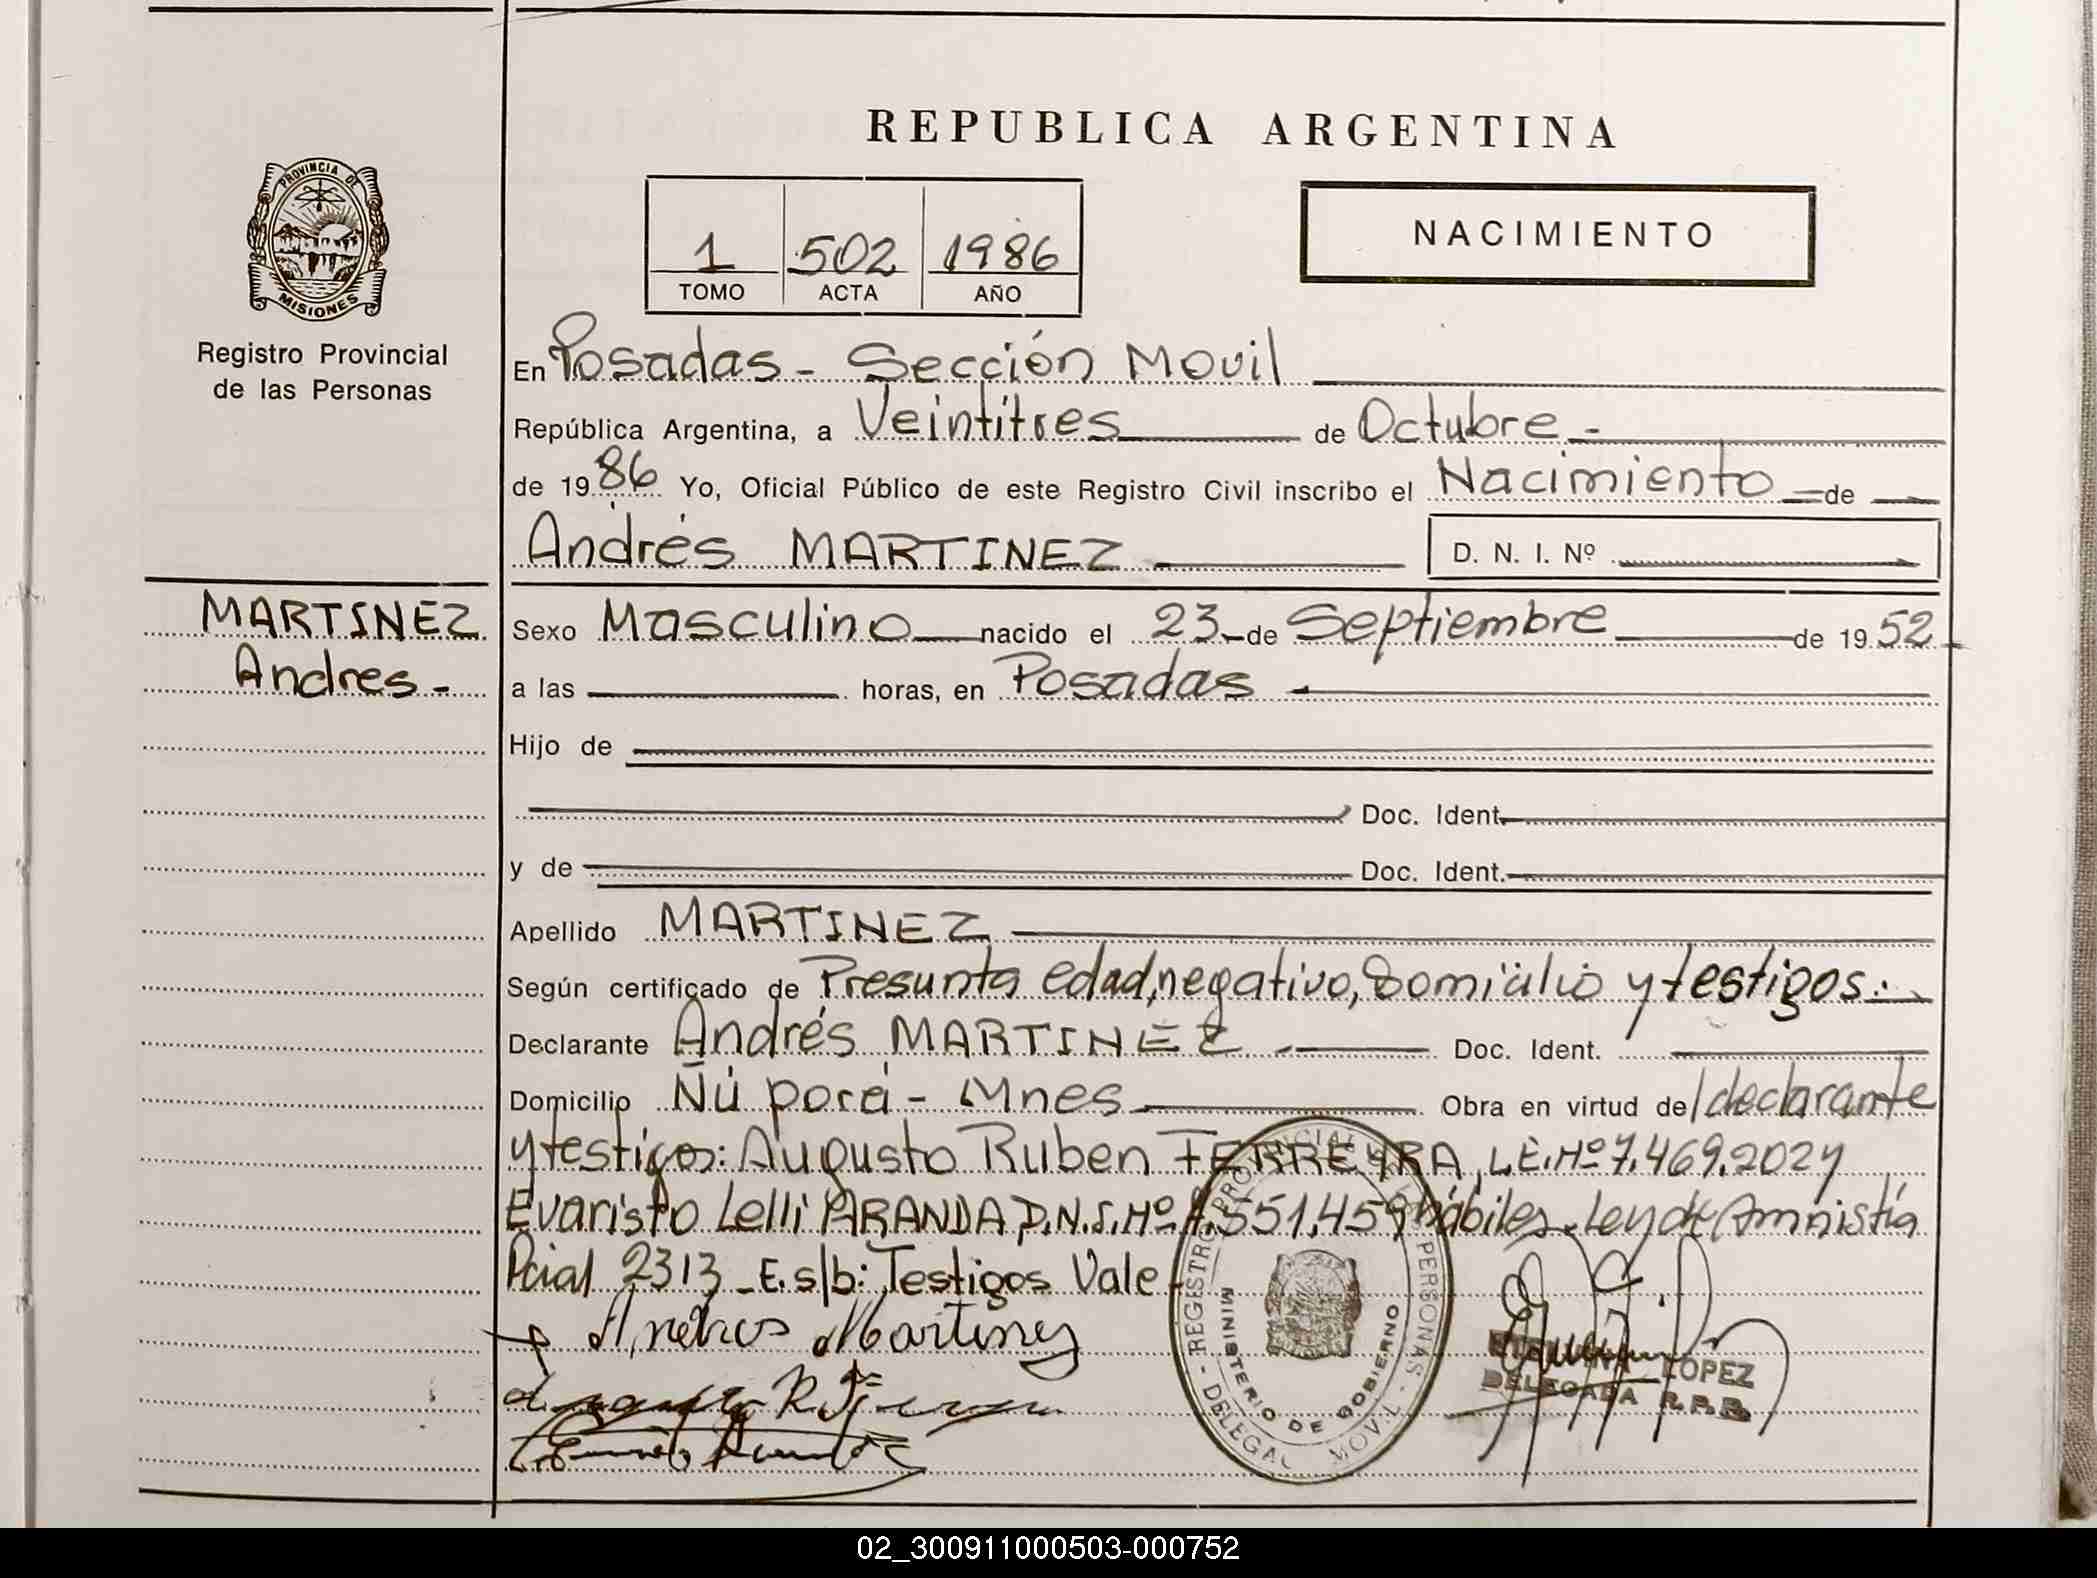 REPUBLICA ARGENTINA
PROVINCIA DE
MISIONES
Registro Provincial
de las Personas
1 502 1986
TOMO ACTA AÑO
NACIMIENTO
En Posadas - Sección Movil
República Argentina, a Veintitres de Octubre -
de 1986 Yo, Oficial Público de este Registro Civil inscribo el Nacimiento de
Andrés MARTINEZ D. N. I. Nº
MARTINEZ
Andres -
Sexo Masculino nacido el 23 de Septiembre de 1952
a las horas, en Posadas
Hijo de
Doc. Ident.
y de Doc. Ident.
Apellido MARTINEZ
Según certificado de Presunta edad, negativo, Domicilio y testigos.
Declarante Andrés MARTINEZ Doc. Ident.
Domicilio Ñú porá - Mnes Obra en virtud de/declarante
y testigos: Augusto Ruben FERREYRA, L.E. Nº 7.469.202 y
Evaristo Lelli ARANDA D.N.I. Nº 551.459 hábiles. Ley de Amnistía
Pcial 2313 - E. s/b: Testigos Vale -
Andres Martinez
REGISTRO PROVINCIAL PERSONAS - DELEGAC MOVIL
MINISTERIO DE GOBIERNO
LOPEZ
DELEGADA R.P.P.
02_300911000503-000752